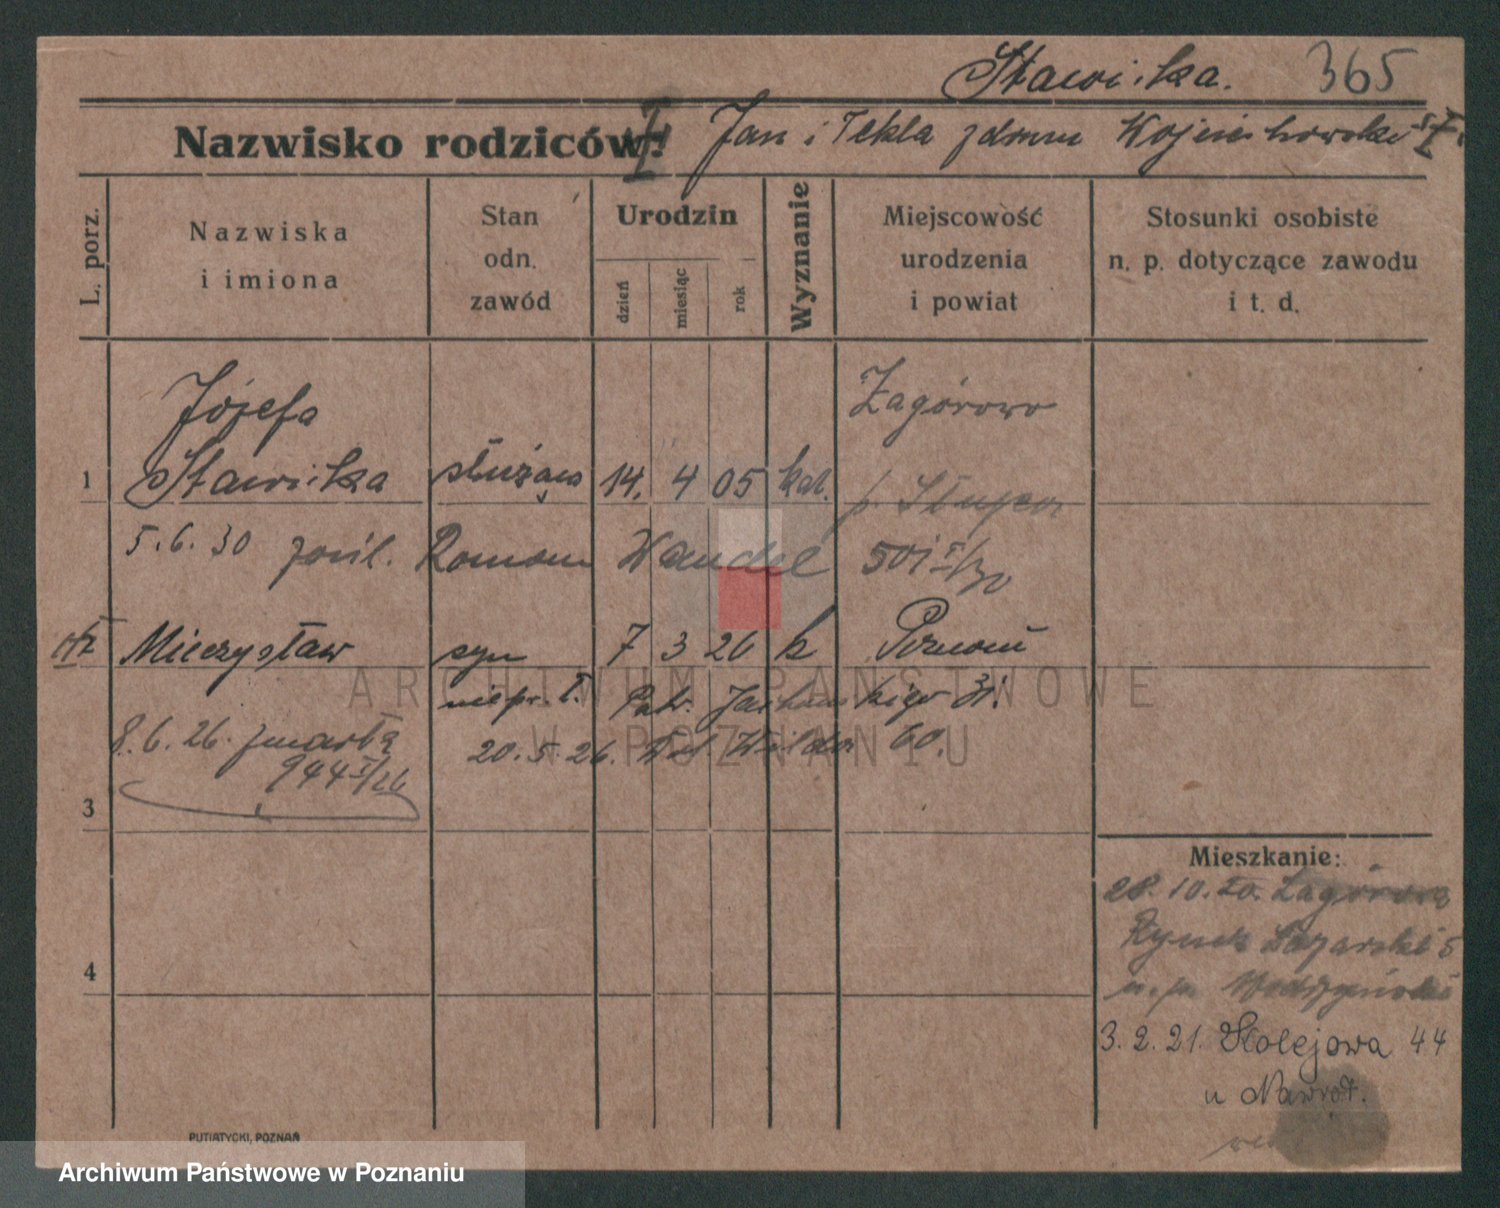 Stawicka. 365
Nazwisko rodziców: Jan i Tekla z domu Wojciechowski
L. porz.
Nazwiska
i imiona
Stan
odn.
zawód
Urodzin
dzień
miesiąc
rok
Wyznanie
Miejscowość
urodzenia
i powiat
Stosunki osobiste
n. p. dotyczące zawodu
i t. d.
Józefa Zagórowo
1 Stawicka służąca 14. 4 05 kat.
p. Słupca
5.6.30 Roman Wandel 501 I/30
Mieczysław syn 7 3 26 k Poznań
niepr. I. Patr. Jackowskiego 31.
8.6.26. zmarł 20.5.26. Wilda 60.
944 I/26
3
Mieszkanie:
28.10.20. Zagórowa
Rynek Łazarski 5
4
3.2.21. Kolejowa 44
u Nawrot.
PUTIATYCKI, POZNAŃ
ARCHIWUM PAŃSTWOWE
W POZNANIU
Archiwum Państwowe w Poznaniu